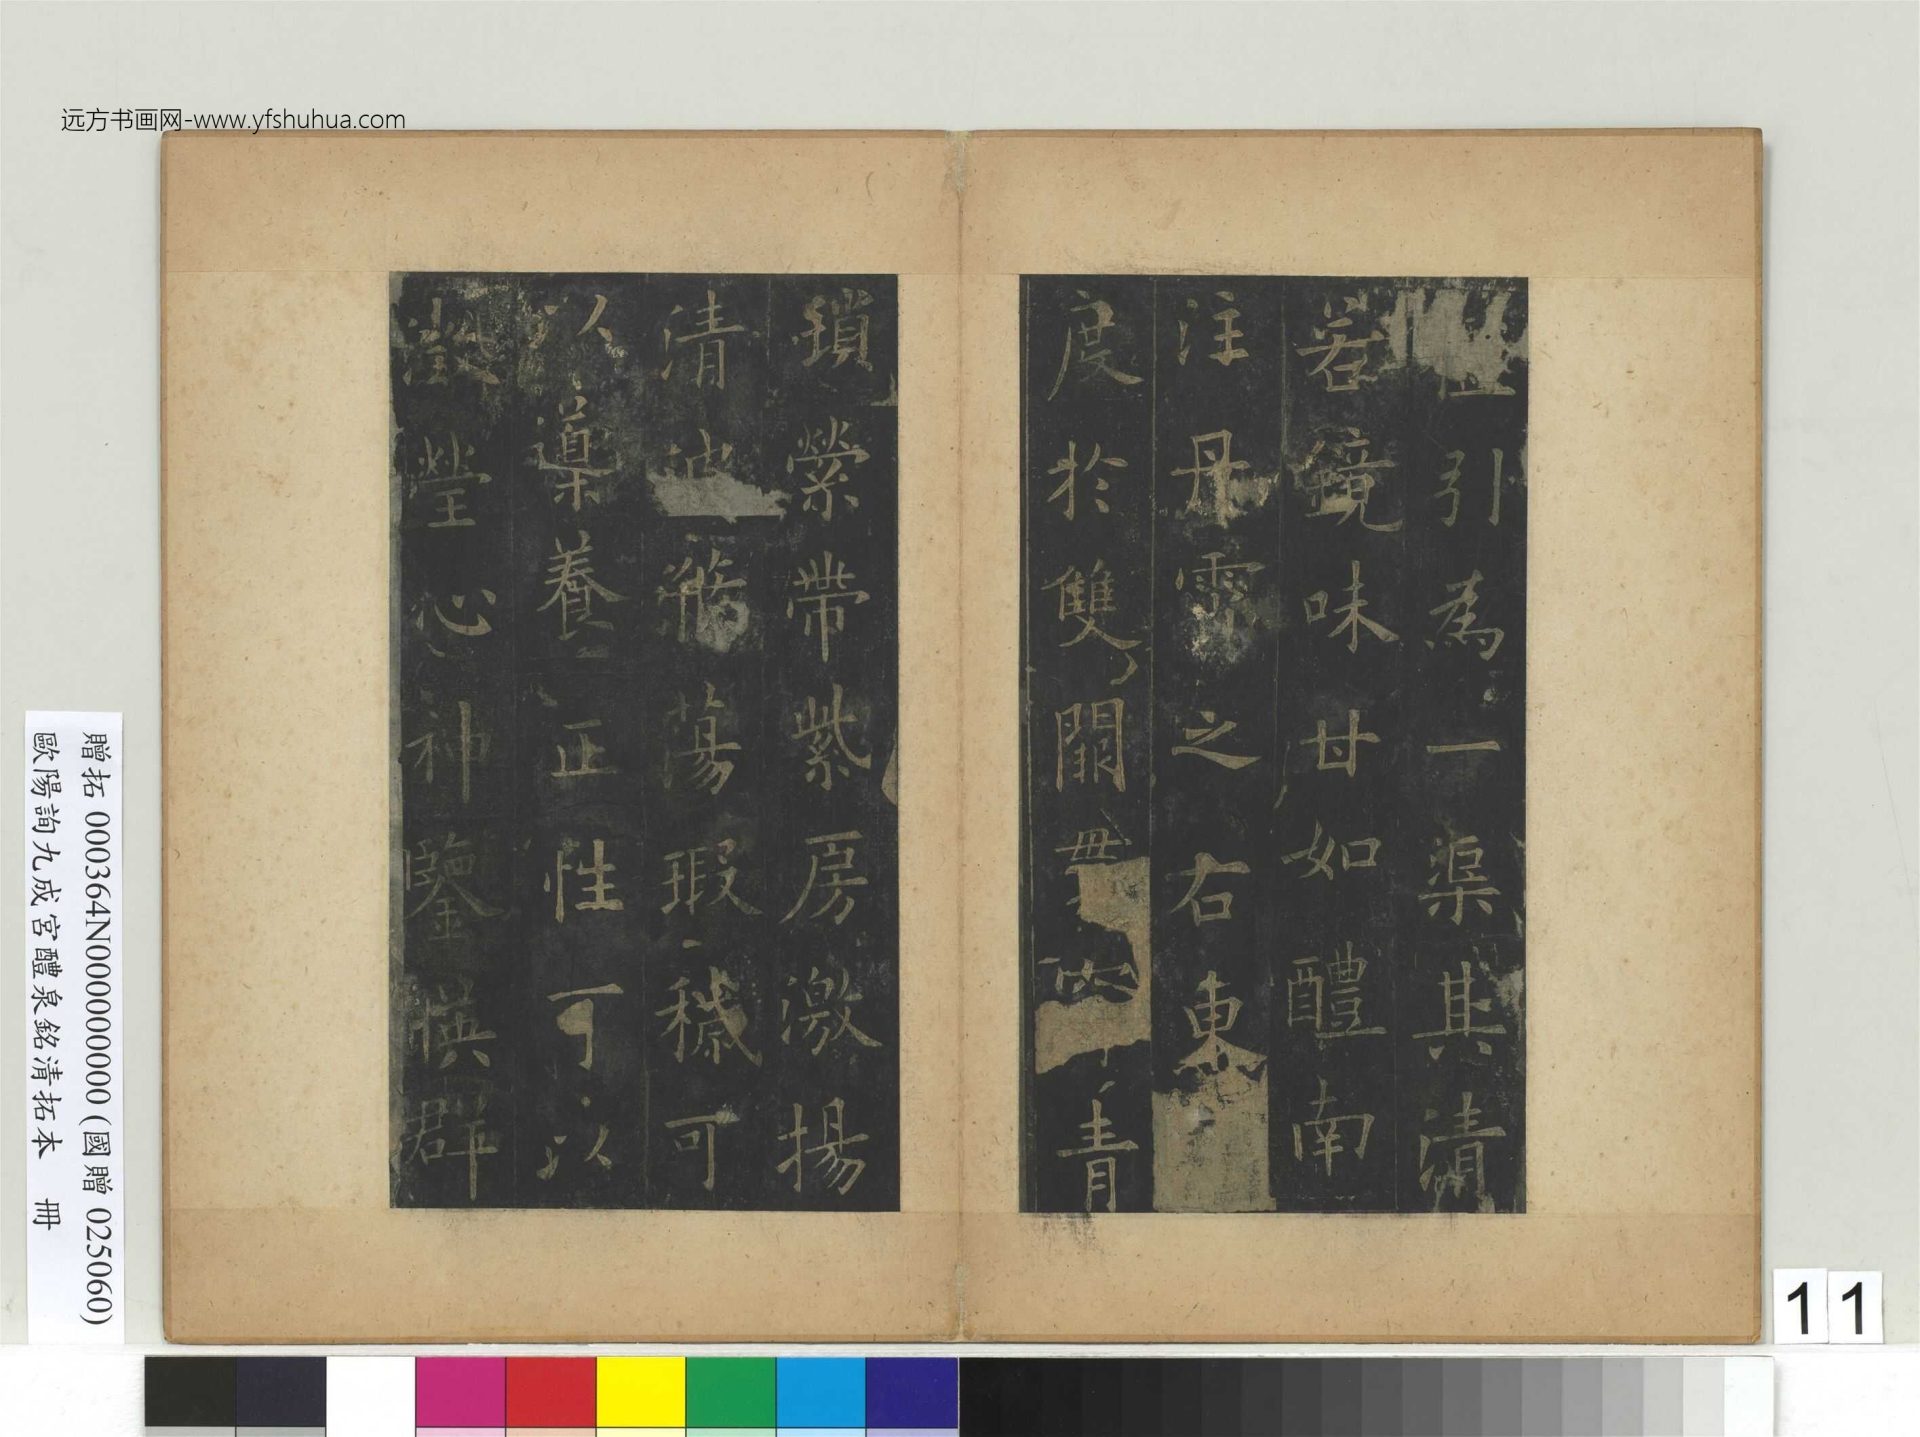 远方书画网-www.yfshuhua.com
引為一渠其清
若鏡味甘如醴南
注丹霄之右東
度於雙闕貫穿青
瑣縈帶紫房激揚
清波滌蕩瑕穢可
以導養正性可以
澂瑩心神鑒暎群
贈拓 000364N000000000 (國贈 025060)
歐陽詢九成宮醴泉銘清拓本 冊
11